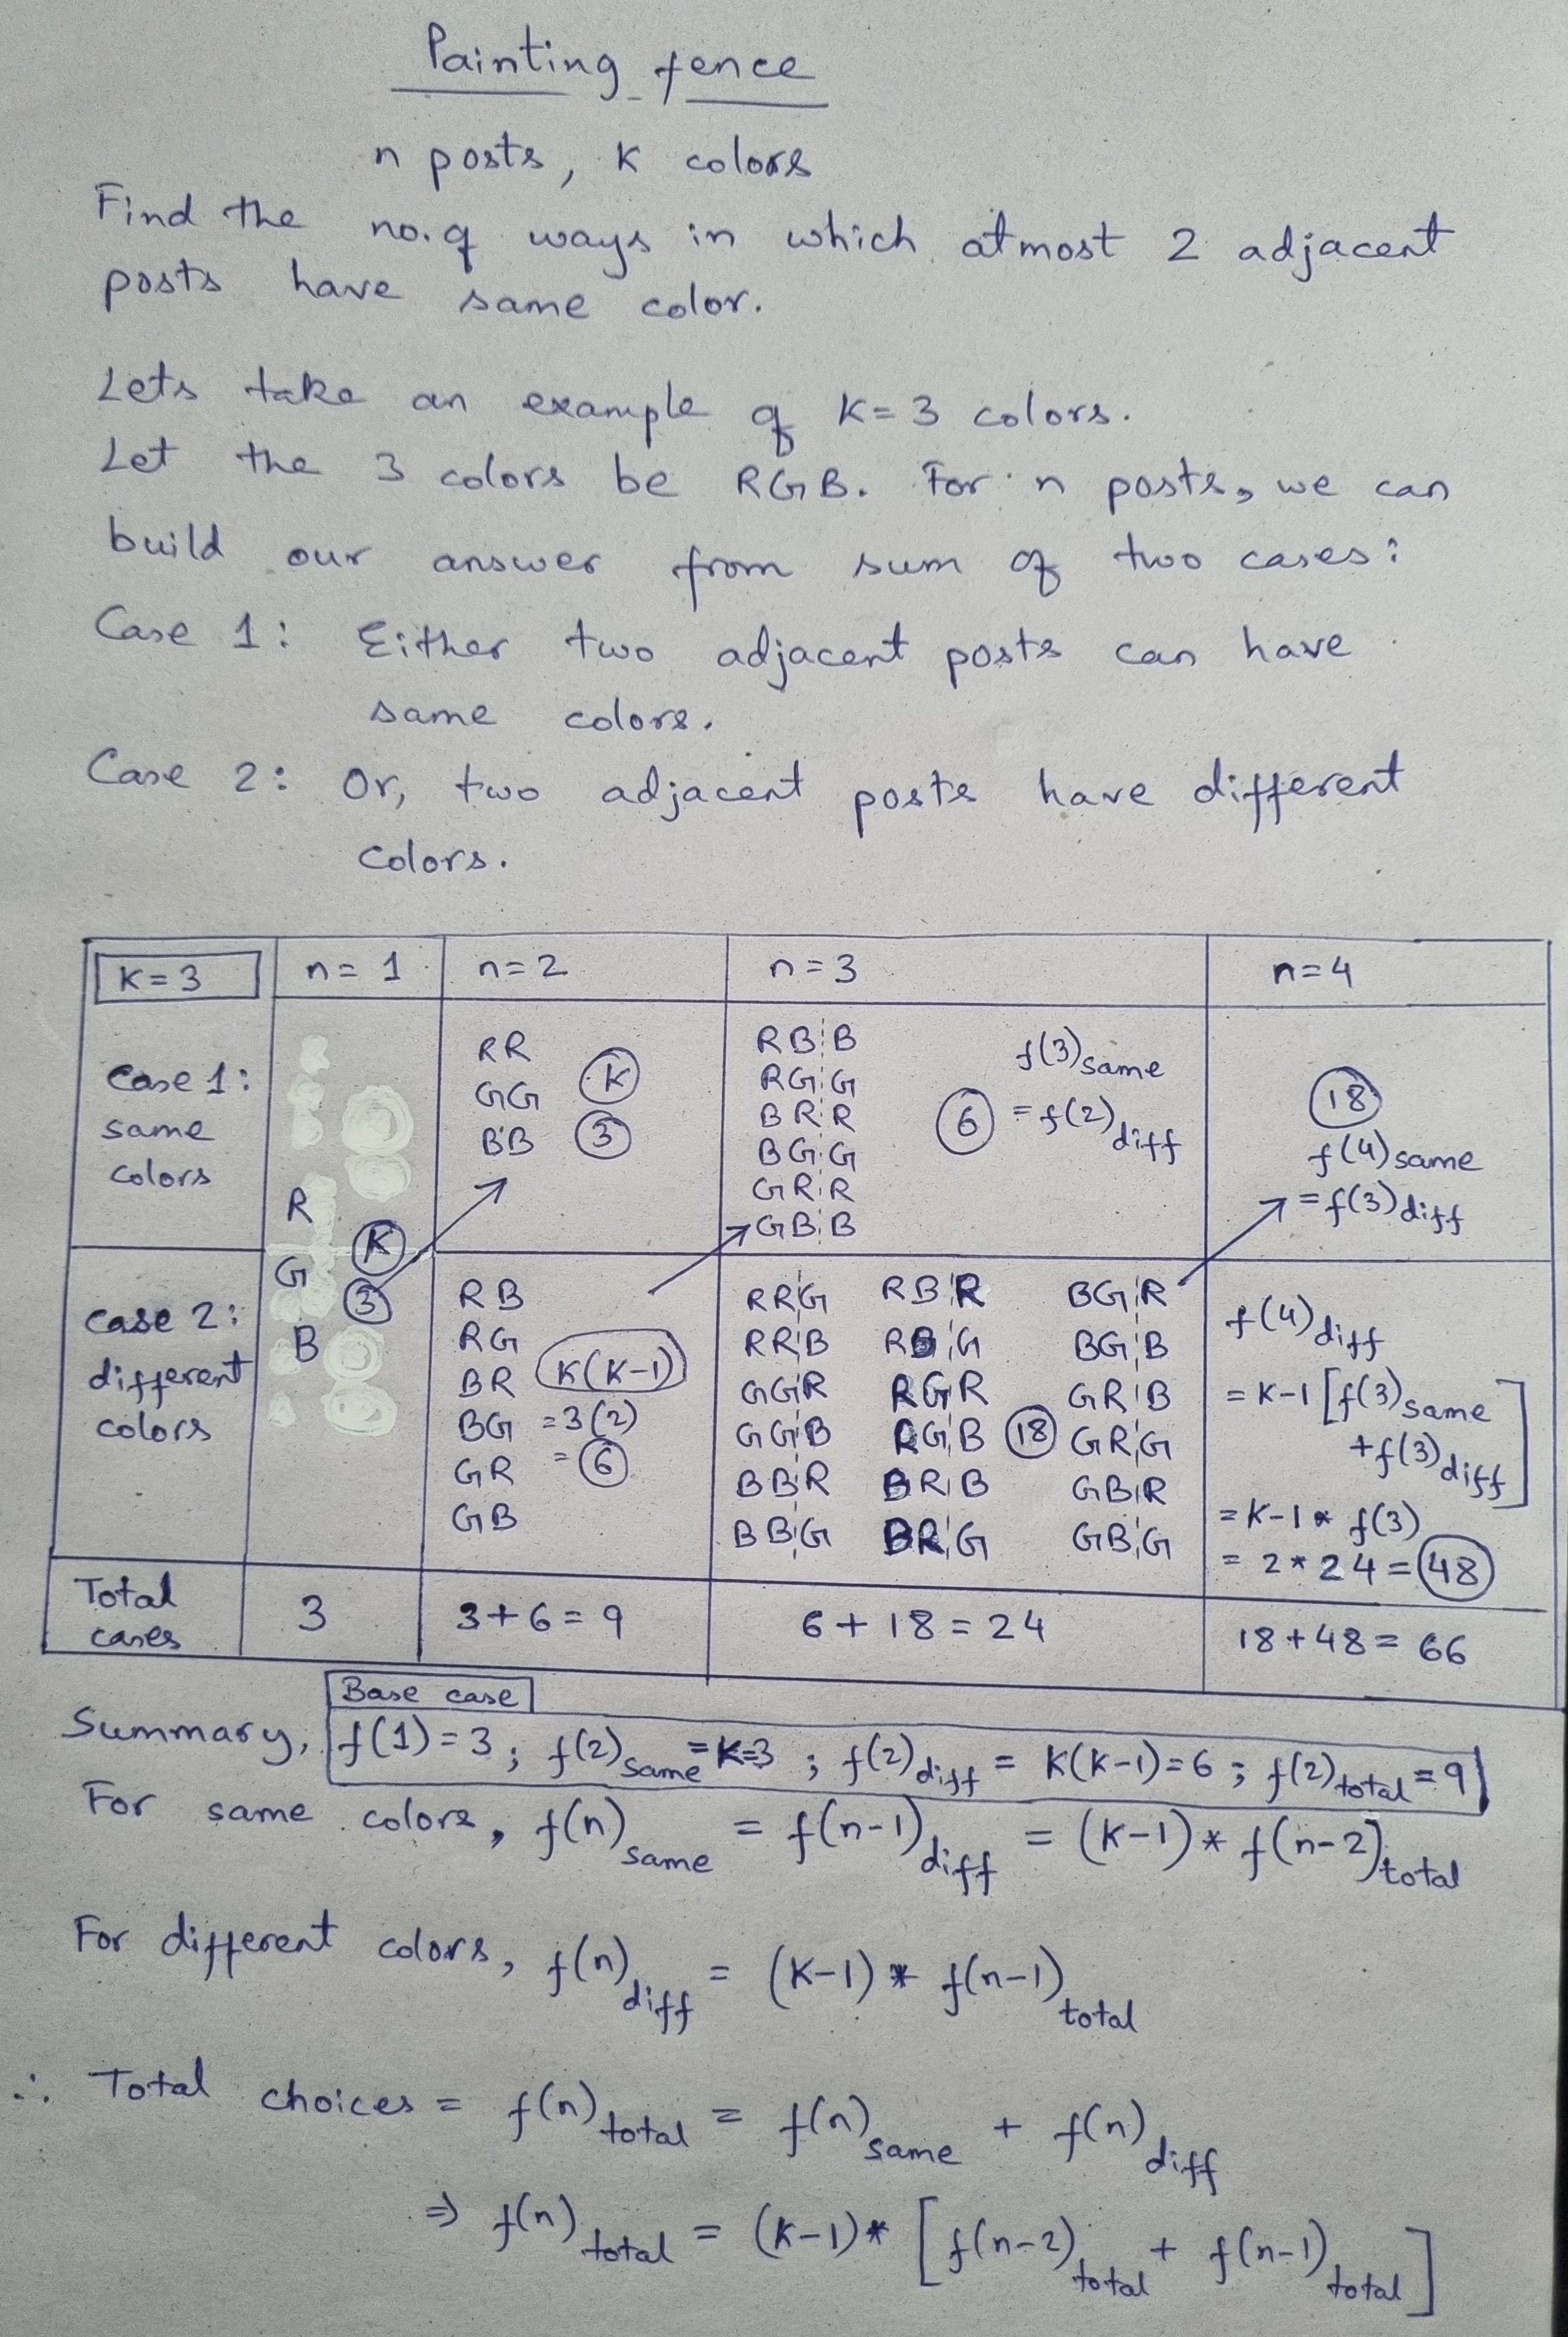 Painting fence
n posts, K colors
Find the no. of ways in which atmost 2 adjacent
posts have same color.
Lets take an example of K=3 colors.
Let the 3 colors be RGB. For n posts, we can
build our answer from sum of two cases:
Case 1: Either two adjacent posts can have
same colors.
Case 2: Or, two adjacent posts have different
colors.
K=3 n=1 n=2 n=3 n=4
Case 1:
same
colors
R
G
B
K
3
RR
GG
BB
K
3
RB¦B
RG¦G
BR¦R
BG¦G
GR¦R
GB¦B
f(3)same
6 = f(2)diff
18
f(4)same
= f(3)diff
case 2:
different
colors
RB
RG
BR
BG
GR
GB
K(K-1)
= 3(2)
= 6
RR¦G RB¦R BG¦R
RR¦B RB¦G BG¦B
GG¦R RG¦R GR¦B
GG¦B RG¦B 18 GR¦G
BB¦R BR¦B GB¦R
BB¦G BR¦G GB¦G
f(4)diff
= K-1 [f(3)same
+f(3)diff]
= K-1 * f(3)
= 2 * 24 = 48
Total
cases
3
3+6=9
6+18=24
18+48=66
Base case
Summary, f(1)=3; f(2)same=K=3; f(2)diff = K(K-1)=6; f(2)total=9
For same colors, f(n)same = f(n-1)diff = (K-1)* f(n-2)total
For different colors, f(n)diff = (K-1)* f(n-1)total
∴ Total choices = f(n)total = f(n)same + f(n)diff
⇒ f(n)total = (K-1)* [f(n-2)total + f(n-1)total]